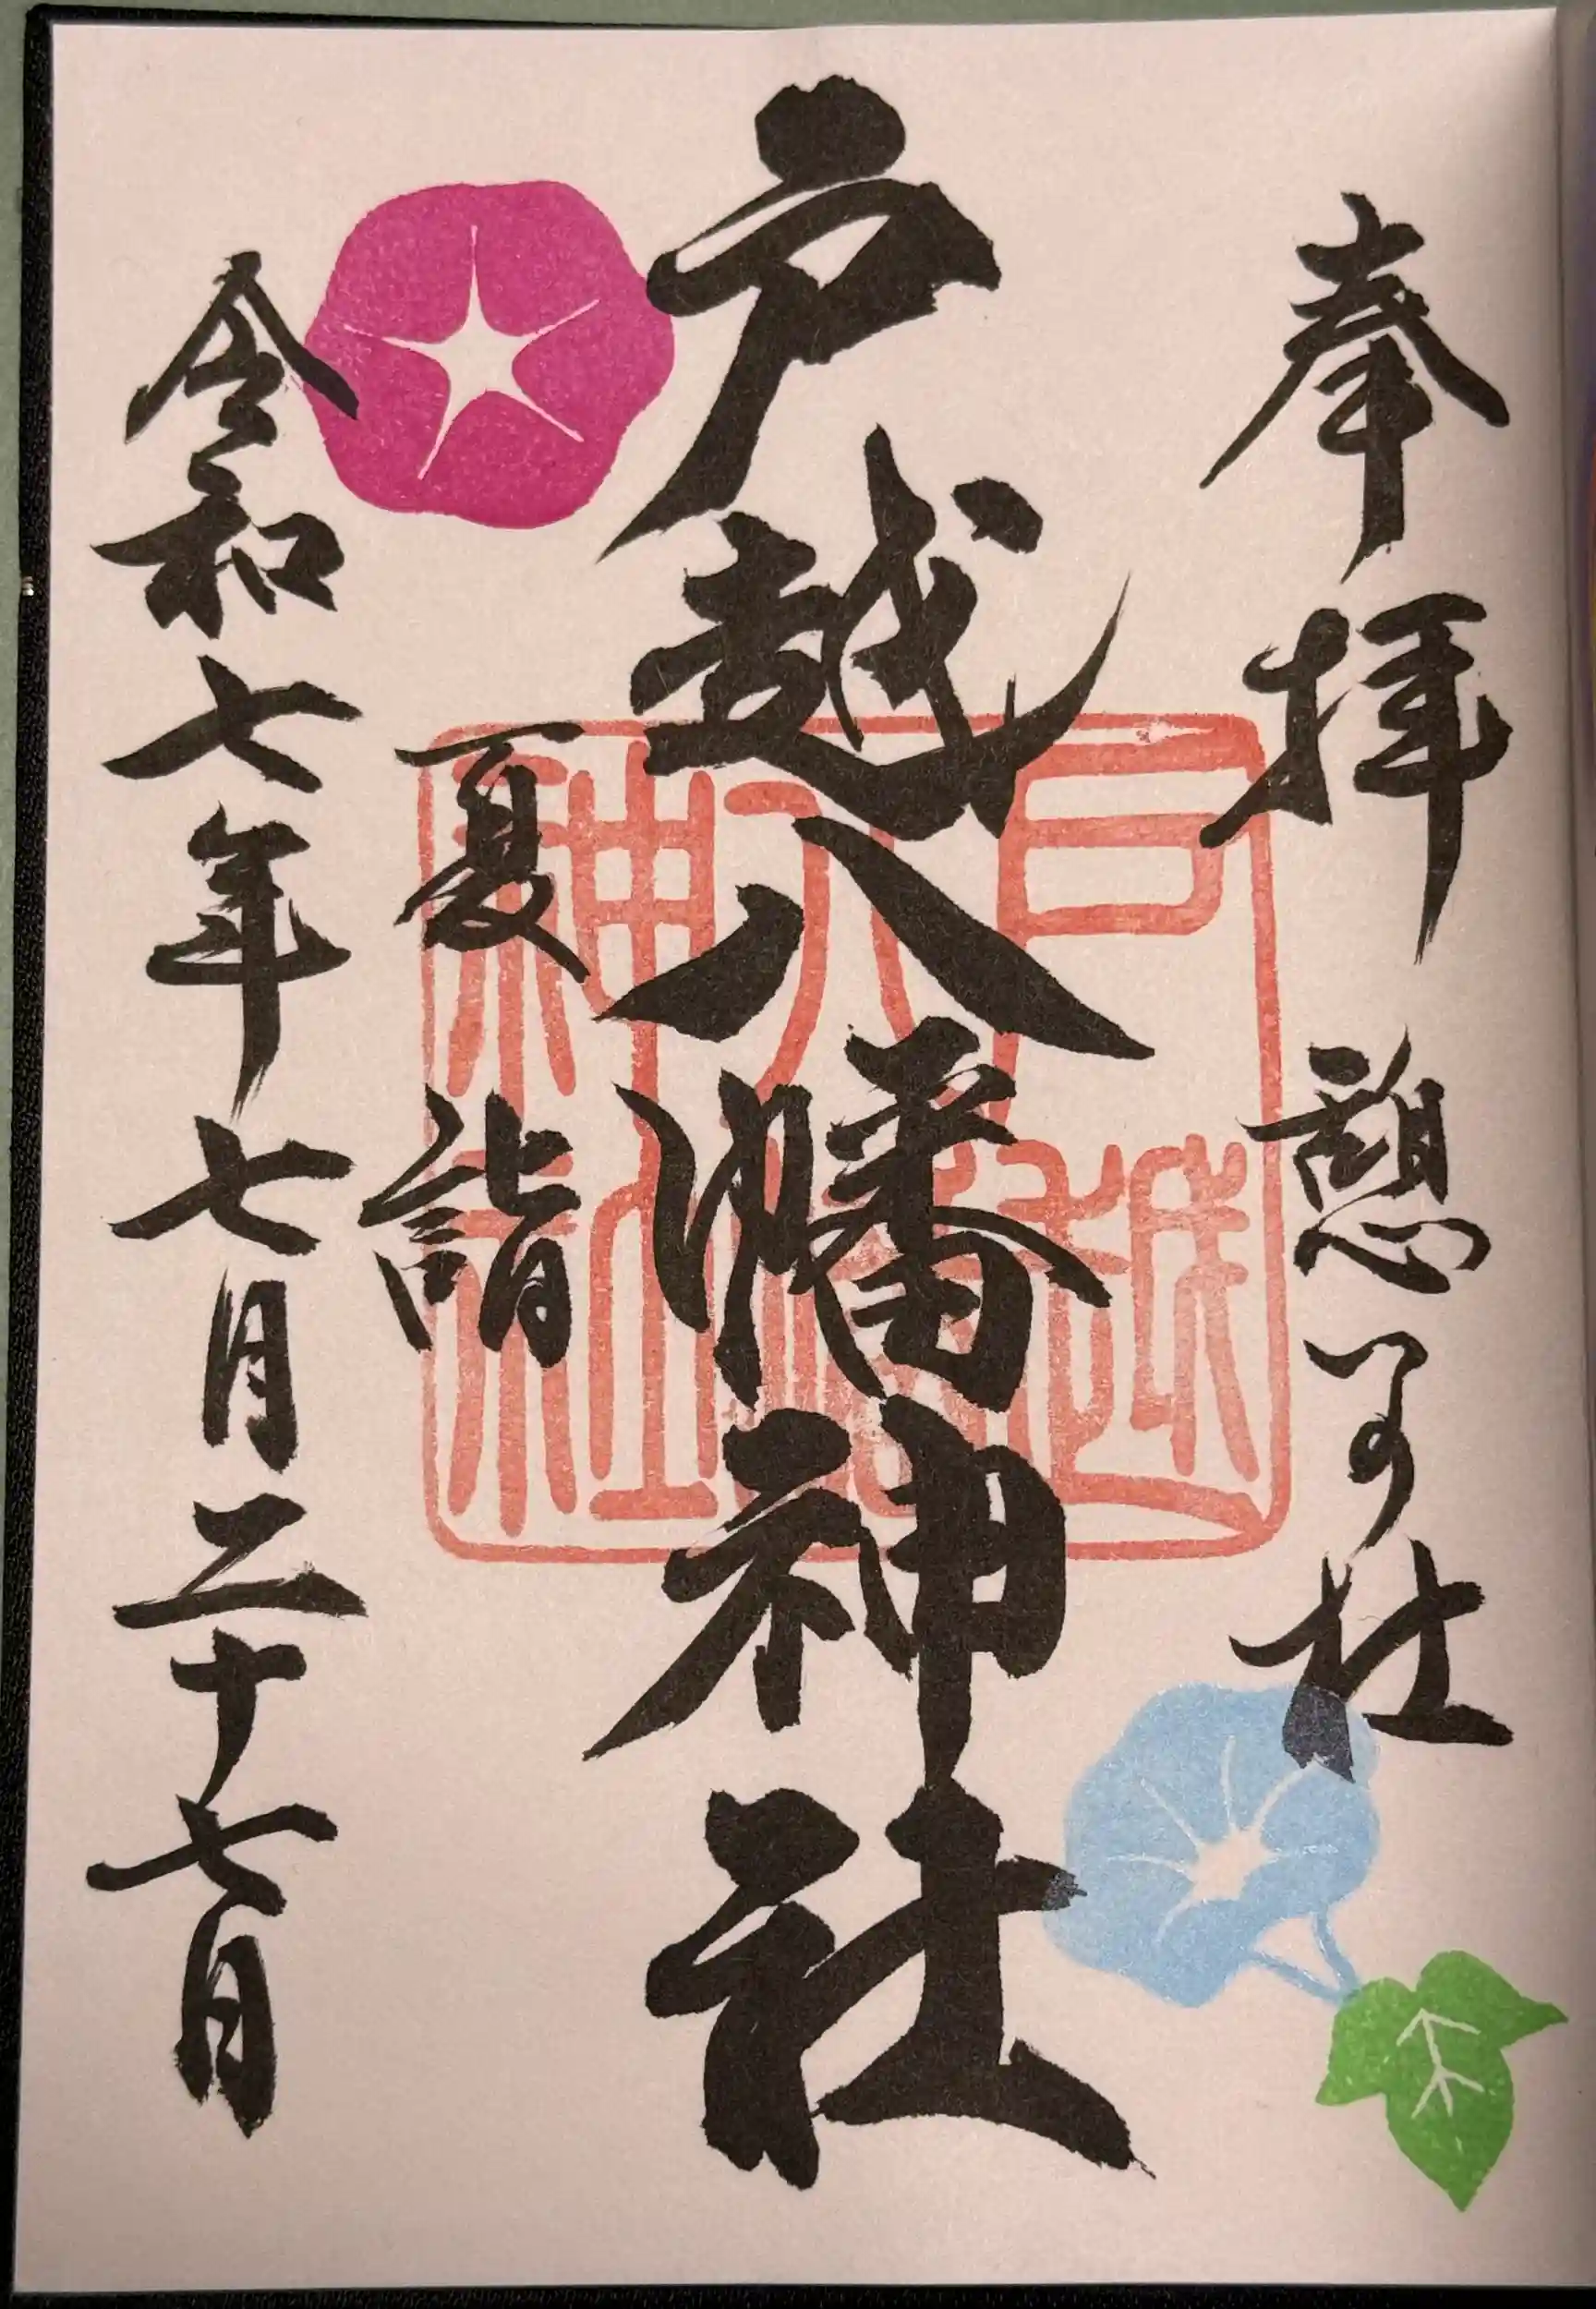 奉拝 憩いの社
戸越八幡神社
夏詣
令和七年七月二十七日
戸越八幡神社